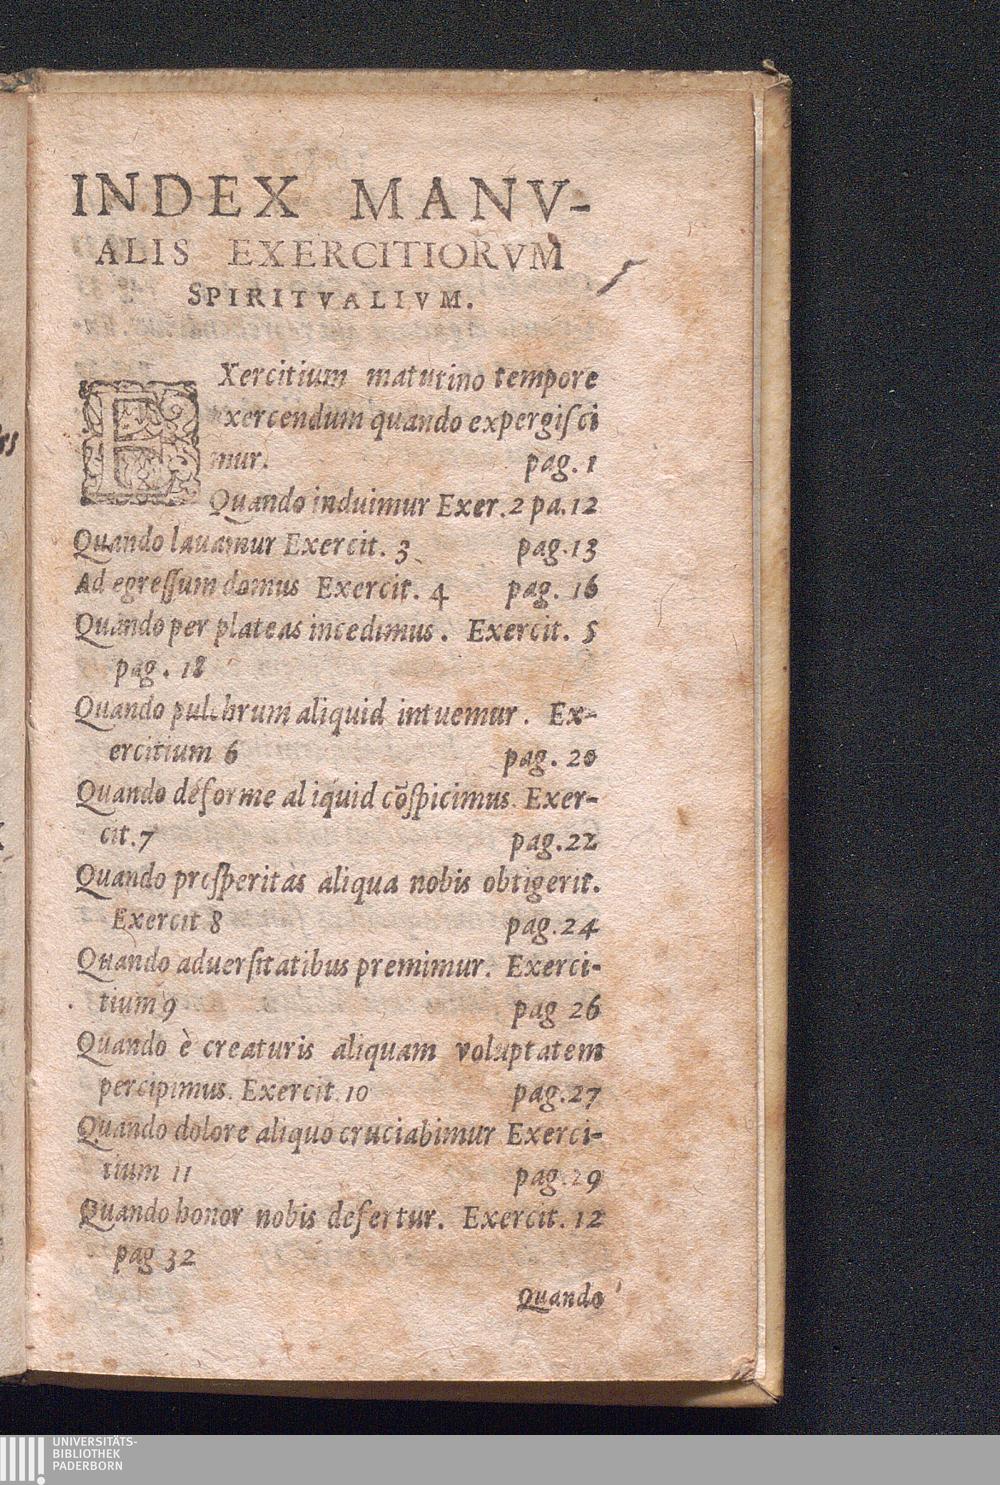 INDEX MANV-
ALIS EXERCITIORVM
SPIRITVALIVM.
EXercitium maturino tempore
exercendum quando expergiſci
mur. pag. 1
Quando induimur Exer. 2 pa. 12
Quando lauamur Exercit. 3 pag. 13
Ad egreſſum domus Exercit. 4 pag. 16
Quando per plateas incedimus. Exercit. 5
pag. 18
Quando pulchrum aliquid intuemur. Ex-
ercitium 6 pag. 20
Quando deforme aliquid cõſpicimus. Exer-
cit. 7 pag. 22
Quando proſperitas aliqua nobis obtigerit.
Exercit 8 pag. 24
Quando aduerſitatibus premimur. Exerci-
tium 9 pag 26
Quando è creaturis aliquam voluptatem
percipimus. Exercit. 10 pag. 27
Quando dolore aliquo cruciabimur Exerci-
tium 11 pag. 29
Quando honor nobis defertur. Exercit. 12
pag 32
Quando
UNIVERSITÄTS-
BIBLIOTHEK
PADERBORN